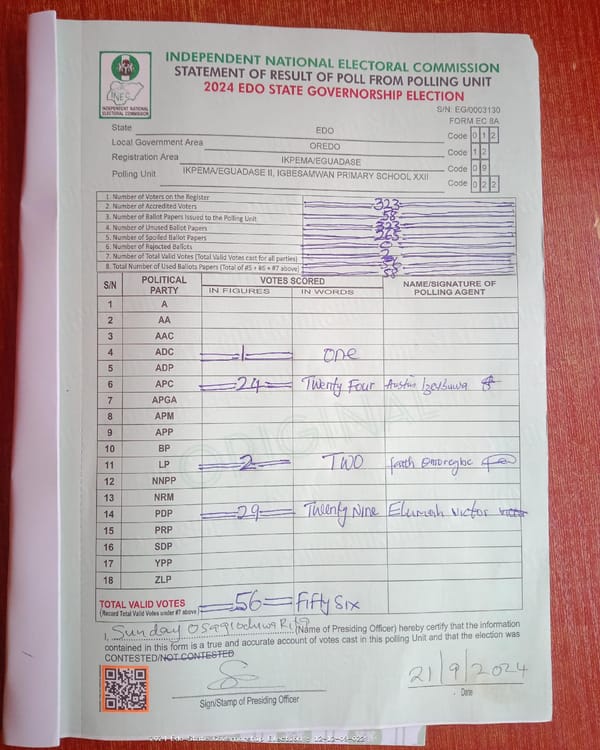 INDEPENDENT NATIONAL ELECTORAL COMMISSION
STATEMENT OF RESULT OF POLL FROM POLLING UNIT
2024 EDO STATE GOVERNORSHIP ELECTION
INEC
INDEPENDENT NATIONAL ELECTORAL COMMISSION
S/N: EG/0003130
FORM EC 8A
State EDO Code 0 1 2
Local Government Area OREDO Code 1 2
Registration Area IKPEMA/EGUADASE Code 0 9
Polling Unit IKPEMA/EGUADASE II, IGBESAMWAN PRIMARY SCHOOL XXII Code 0 2 2
1. Number of Voters on the Register 323
2. Number of Accredited Voters 58
3. Number of Ballot Papers Issued to the Polling Unit 323
4. Number of Unused Ballot Papers 265
5. Number of Spoiled Ballot Papers 0
6. Number of Rejected Ballots 2
7. Number of Total Valid Votes (Total Valid Votes cast for all parties) 56
8. Total Number of Used Ballots Papers (Total of #5 + #6 + #7 above) 58
S/N POLITICAL PARTY VOTES SCORED NAME/SIGNATURE OF POLLING AGENT
IN FIGURES IN WORDS
1 A
2 AA
3 AAC
4 ADC 1 one
5 ADP
6 APC 24 Twenty Four Austin
7 APGA
8 APM
9 APP
10 BP
11 LP 2 TWO faith Omoregbe
12 NNPP
13 NRM
14 PDP 29 Twenty Nine Elumah victor
15 PRP
16 SDP
17 YPP
18 ZLP
ORIGINAL
TOTAL VALID VOTES 56 Fifty Six
(Record Total Valid Votes under #7 above)
I, Sunday Osagioduwa Rita (Name of Presiding Officer) hereby certify that the information
contained in this form is a true and accurate account of votes cast in this polling Unit and that the election was
CONTESTED/NOT CONTESTED
21/9/2024
Sign/Stamp of Presiding Officer Date